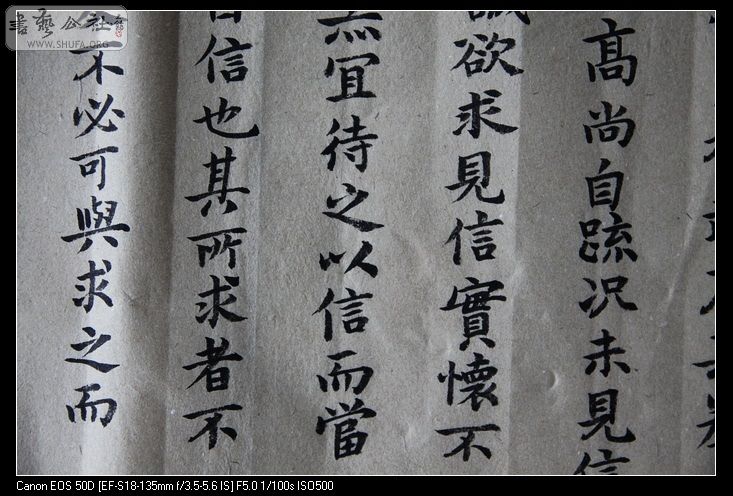 書藝公社
WWW.SHUFA.ORG
高尚自疏况未見信
誠欲求見信實懷不
宜待之以信而當
信也其所求者不
不必可與求之而
Canon EOS 50D [EF-S18-135mm f/3.5-5.6 IS] F5.0 1/100s ISO500